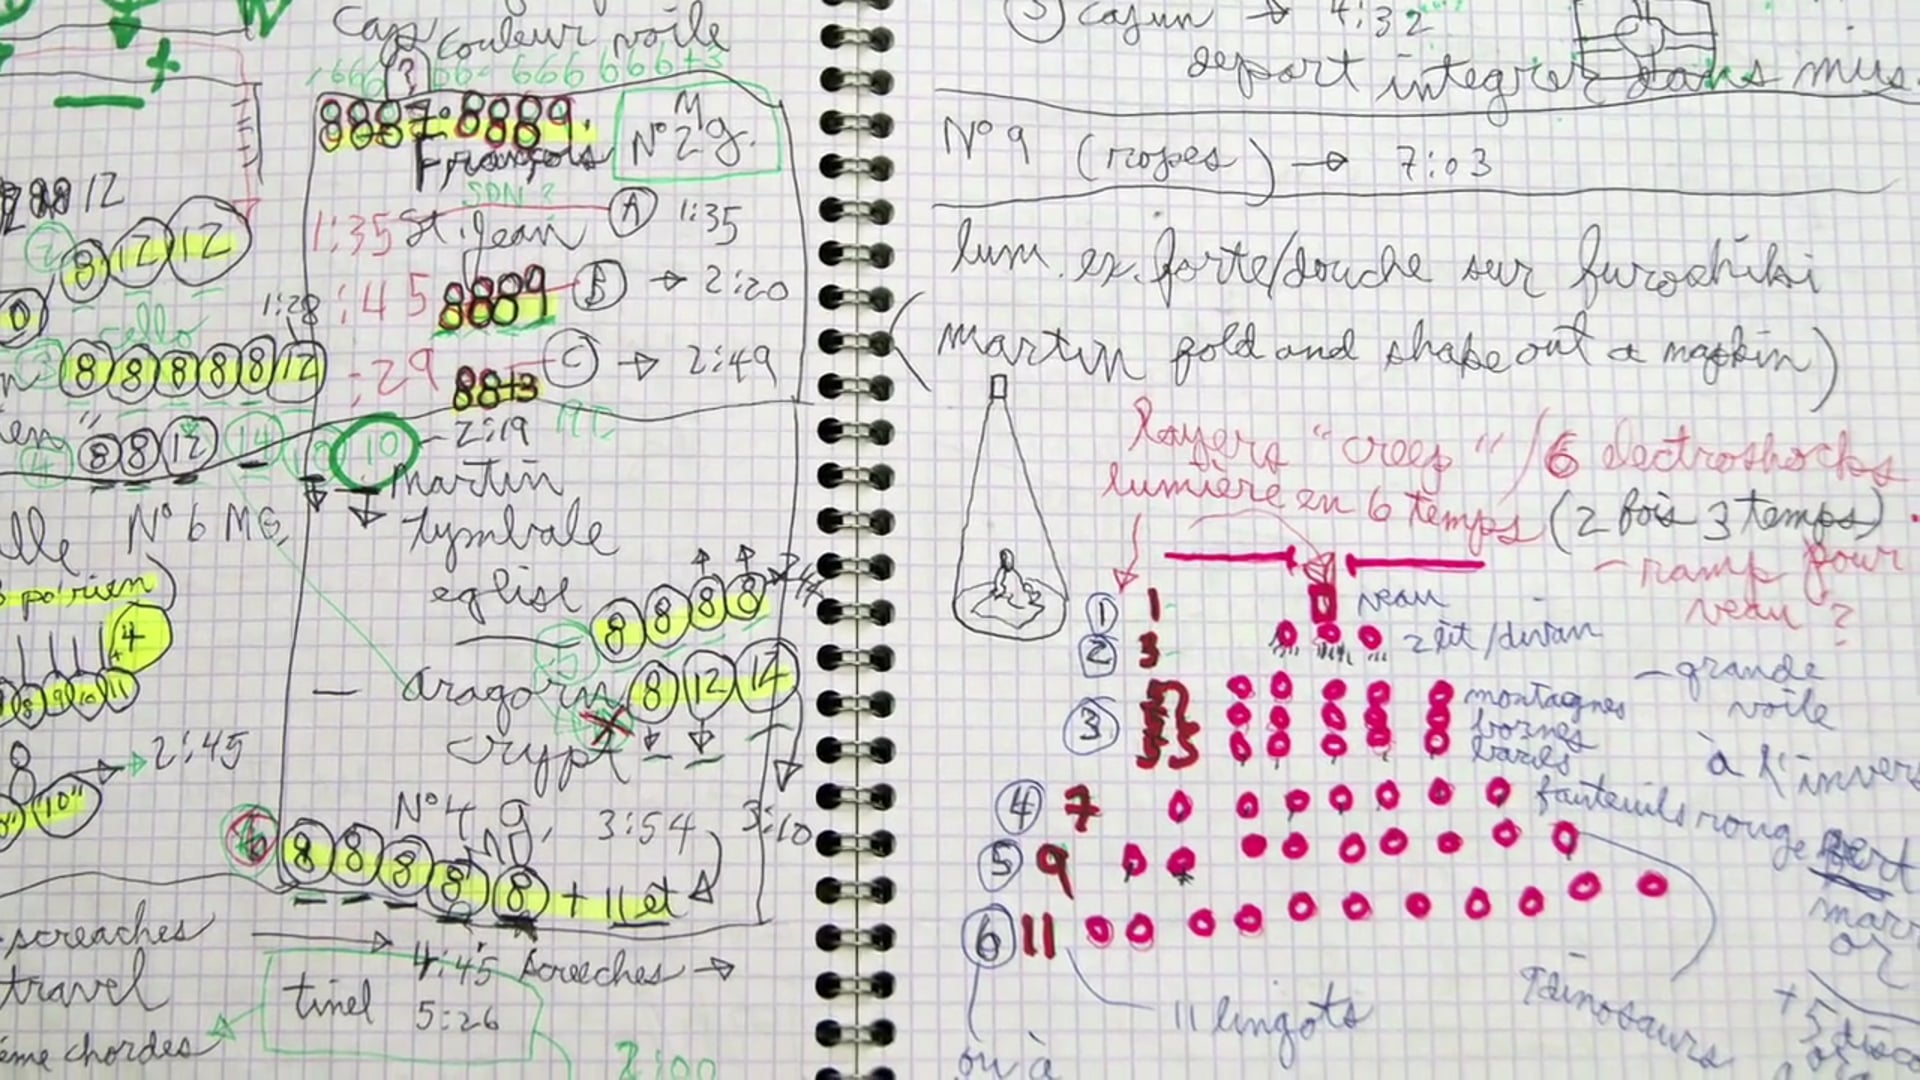 Cap couleur voile
666 666 666+3
?
8887.8889.
François
M
N° 2 g.
SDN ?
8812
2
8 12 12
1:35 St. Jean A 1:35
:45 8889 B → 2:20
1:28
cello
8 8 8 8 8 12
:29 88+3 C → 2:49
4 8 8 12 14 10 - 2:19
martin
tymbale
eglise
8 8 8 8
N° 6 MG.
4
8 9 10 11
8 → 2:45
"10"
— aragorn 8 12 14
crypt
N° 4 g, 3:54 3:10
8 8 8 8 8 + 11 et
screaches
travel
4:45 screeches →
tinel 5:26
ème chordes
2:00
5 cajun → 4:32
depart integrer dans mus.
N° 9 (ropes) → 7:03
lum. ex. forte/douche sur furoshiki
(martin fold and shape out a napkin)
layers "creep" / 6 electroshocks
lumière en 6 temps (2 fois 3 temps).
- ramp pour
veau ?
1 1 veau
2 3 2 lit/divan
- grande
voile
à l'invers
3 555 montagnes
bornes
barils
4 7 fauteuils rouge
5 9
6 11
11 lingots
9 dinosaurs
or
+ 5 disco
ou à